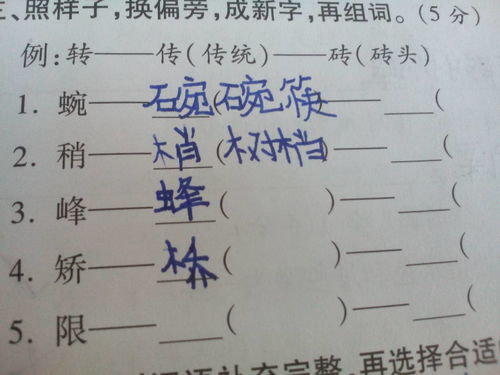 三、照样子,换偏旁,成新字,再组词。(5分)
例:转——传(传统)——砖(砖头)
1. 蜿——碗(碗筷——___(
2. 稍——梢(树梢)——___(
3. 峰——蜂( )——___(
4. 矫——桥( )——___(
5. 限——___( )——___(
补充完整,再选择合适